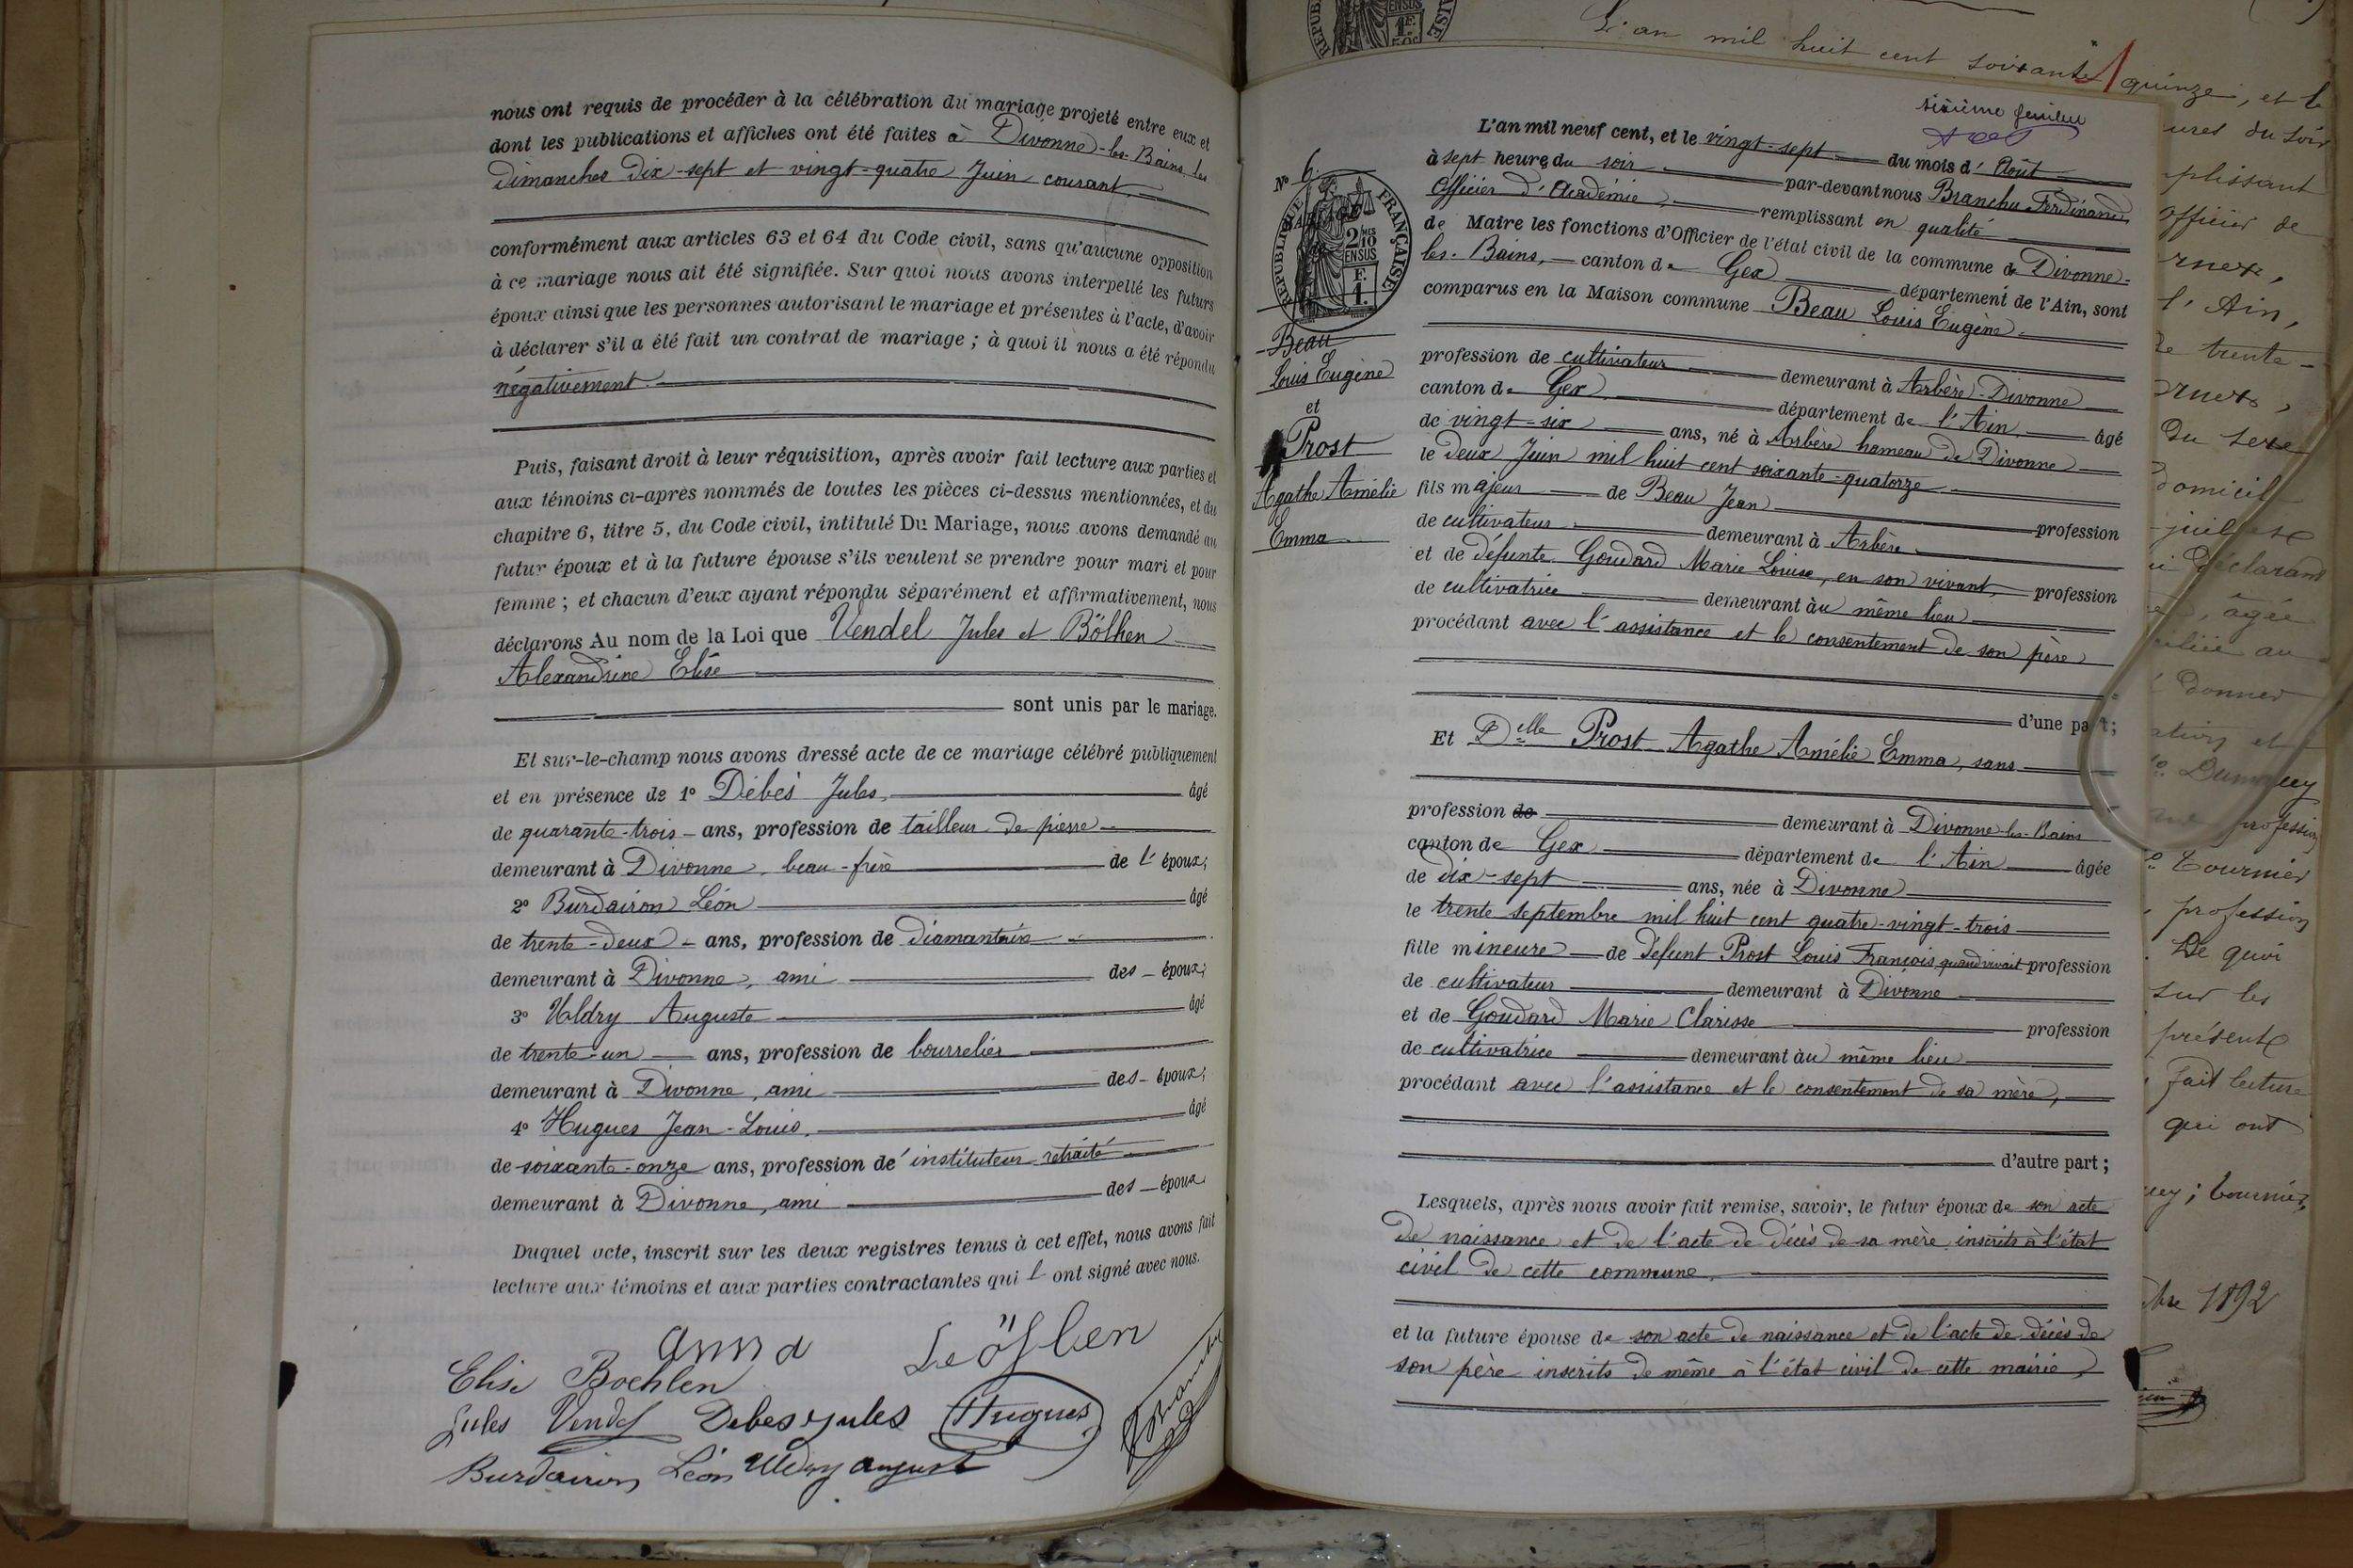 nous ont requis de procéder à la célébration du mariage projeté entre eux et
dont les publications et affiches ont été faites à Divonne-les-Bains, les
Dimanches dix-sept et vingt-quatre Juin courant,
conformément aux articles 63 et 64 du Code civil, sans qu'aucune opposition
à ce mariage nous ait été signifiée. Sur quoi nous avons interpellé les futurs
époux ainsi que les personnes autorisant le mariage et présentes à l'acte, d'avoir
à déclarer s'il a été fait un contrat de mariage ; à quoi il nous a été répondu
négativement.
Puis, faisant droit à leur réquisition, après avoir fait lecture aux parties et
aux témoins ci-après nommés de toutes les pièces ci-dessus mentionnées, et du
chapitre 6, titre 5, du Code civil, intitulé Du Mariage, nous avons demandé au
futur époux et à la future épouse s'ils veulent se prendre pour mari et pour
femme ; et chacun d'eux ayant répondu séparément et affirmativement, nous
déclarons Au nom de la Loi que Vendel Jules et Bölhen
Alexandrine Elise
sont unis par le mariage.
Et sur-le-champ nous avons dressé acte de ce mariage célébré publiquement
et en présence de 1° Débès Jules, âgé
de quarante-trois ans, profession de tailleur de pierre
demeurant à Divonne, beau-frère de l'époux;
2° Burdairon Léon âgé
de trente-deux ans, profession de diamantaire
demeurant à Divonne, ami des époux;
3° Uldry Auguste âgé
de trente-un ans, profession de bourrelier
demeurant à Divonne, ami des époux;
4° Hugues Jean-Louis, âgé
de soixante-onze ans, profession d'instituteur retraité
demeurant à Divonne, ami des époux
Duquel acte, inscrit sur les deux registres tenus à cet effet, nous avons fait
lecture aux témoins et aux parties contractantes qui l'ont signé avec nous.
Anna
Elise Boehlen
Jules Vendel Debes Jules Hugues
Burdairon Léon Uldry August
L'an mil huit cent soixante quinze, et le
sixième feuillet
N° 6
REPUBLIQUE FRANÇAISE
2/10 EN SUS
F. 1.
Beau
Louis Eugène
et
Prost
Agathe Amélie
Emma
L'an mil neuf cent, et le vingt-sept du mois d'Août
à sept heures du soir par-devant nous Branchu Ferdinand,
Officier d'Académie, remplissant en qualité
de Maire les fonctions d'Officier de l'état civil de la commune de Divonne-
les-Bains, canton de Gex département de l'Ain, sont
comparus en la Maison commune Beau Louis Eugène
profession de cultivateur demeurant à Arbère-Divonne
canton de Gex département de l'Ain âgé
de vingt-six ans, né à Arbère hameau de Divonne
le deux Juin mil huit cent soixante-quatorze
fils majeur de Beau Jean profession
de cultivateur demeurant à Arbère
et de défunte Goudard Marie Louise, en son vivant, profession
de cultivatrice demeurant au même lieu
procédant avec l'assistance et le consentement de son père
d'une part;
Et Delle Prost Agathe Amélie Emma, sans
profession de demeurant à Divonne-les-Bains
canton de Gex département de l'Ain âgée
de dix-sept ans, née à Divonne
le trente septembre mil huit cent quatre-vingt-trois
fille mineure de défunt Prost Louis François, quand vivait profession
de cultivateur demeurant à Divonne
et de Goudard Marie Clarisse profession
de cultivatrice demeurant au même lieu
procédant avec l'assistance et le consentement de sa mère,
d'autre part ;
Lesquels, après nous avoir fait remise, savoir, le futur époux de son acte
de naissance et de l'acte de décès de sa mère inscrits à l'état
civil de cette commune,
et la future épouse de son acte de naissance et de l'acte de décès de
son père inscrits de même à l'état civil de cette mairie,
du soir
Officier de
l'Ain,
de trente-
déclarant
âgée
donner
profession
Tournier
profession
De quoi
sur les
présente
Fait lecture
qui ont
Tournier,
1892